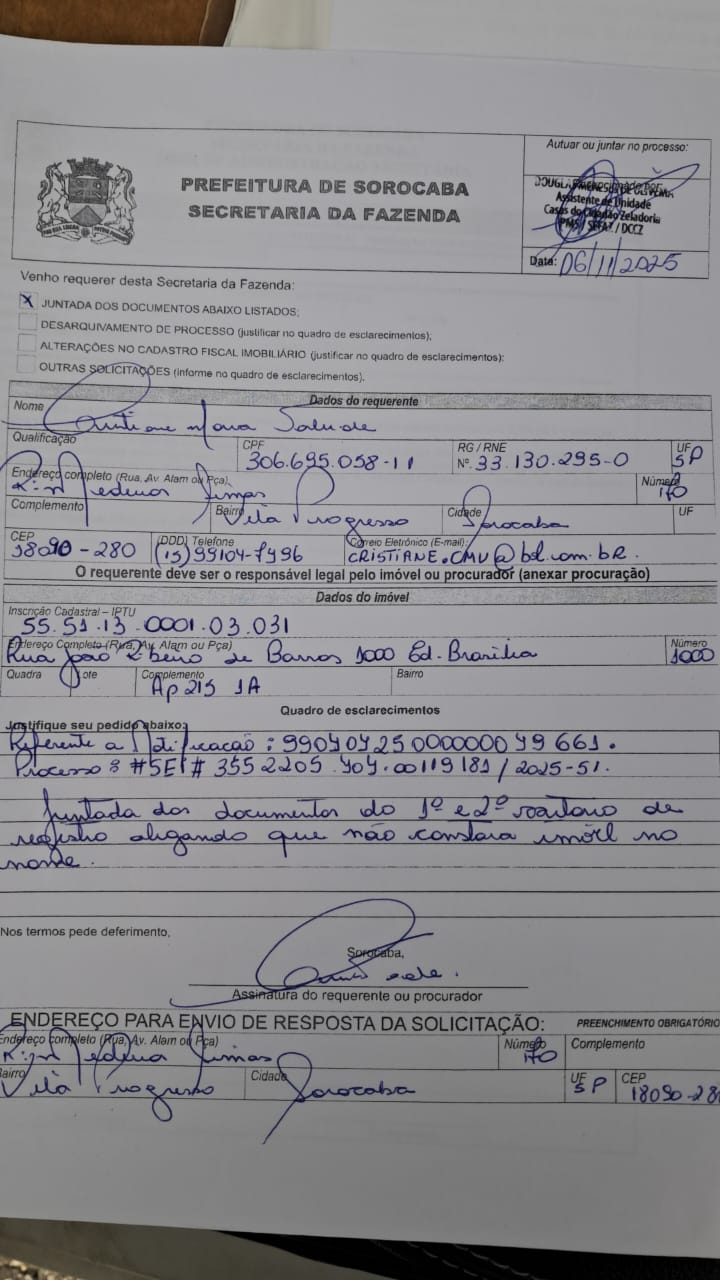 Autuar ou juntar no processo:
PREFEITURA DE SOROCABA
SECRETARIA DA FAZENDA
Assistente de Unidade
Casas do Cidadão Zeladoria
PMS / SEFAZ / DCCZ
Data: 06/11/2025
Venho requerer desta Secretaria da Fazenda:
X JUNTADA DOS DOCUMENTOS ABAIXO LISTADOS;
DESARQUIVAMENTO DE PROCESSO (justificar no quadro de esclarecimentos);
ALTERAÇÕES NO CADASTRO FISCAL IMOBILIÁRIO (justificar no quadro de esclarecimentos);
OUTRAS SOLICITAÇÕES (informe no quadro de esclarecimentos).
Dados do requerente
Nome Cristiane Mara
Qualificação CPF 306.695.058-11 RG / RNE Nº. 33.130.295-0 UF SP
Endereço completo (Rua, Av. Alam ou Pça) Número 170
Complemento Bairro Vila Progresso Cidade Sorocaba UF
CEP 18090-280 (DDD) Telefone (15) 99104-7496 Correio Eletrônico (E-mail): CRISTIANE.CMV@bol.com.bR.
O requerente deve ser o responsável legal pelo imóvel ou procurador (anexar procuração)
Dados do imóvel
Inscrição Cadastral – IPTU
55.51.13.0001.03.031
Endereço Completo (Rua, Av. Alam ou Pça) Número
Rua João Ribeiro de Barros 1000 Ed. Brasilia 1000
Quadra Lote Complemento Ap 215 1A Bairro
Quadro de esclarecimentos
Justifique seu pedido abaixo:
Referente a Notificação: 99040425000000049661.
Processo: #SEI # 3552205.404.00119181/2025-51.
Juntada dos documentos do 1º e 2º cartorio de
registro alegando que não constara imóvl no
nome.
Nos termos pede deferimento,
Sorocaba,
Assinatura do requerente ou procurador
ENDEREÇO PARA ENVIO DE RESPOSTA DA SOLICITAÇÃO: PREENCHIMENTO OBRIGATÓRIO
Endereço completo (Rua, Av. Alam ou Pça) Número 170 Complemento
Bairro Vila Progresso Cidade Sorocaba UF SP CEP 18090-28